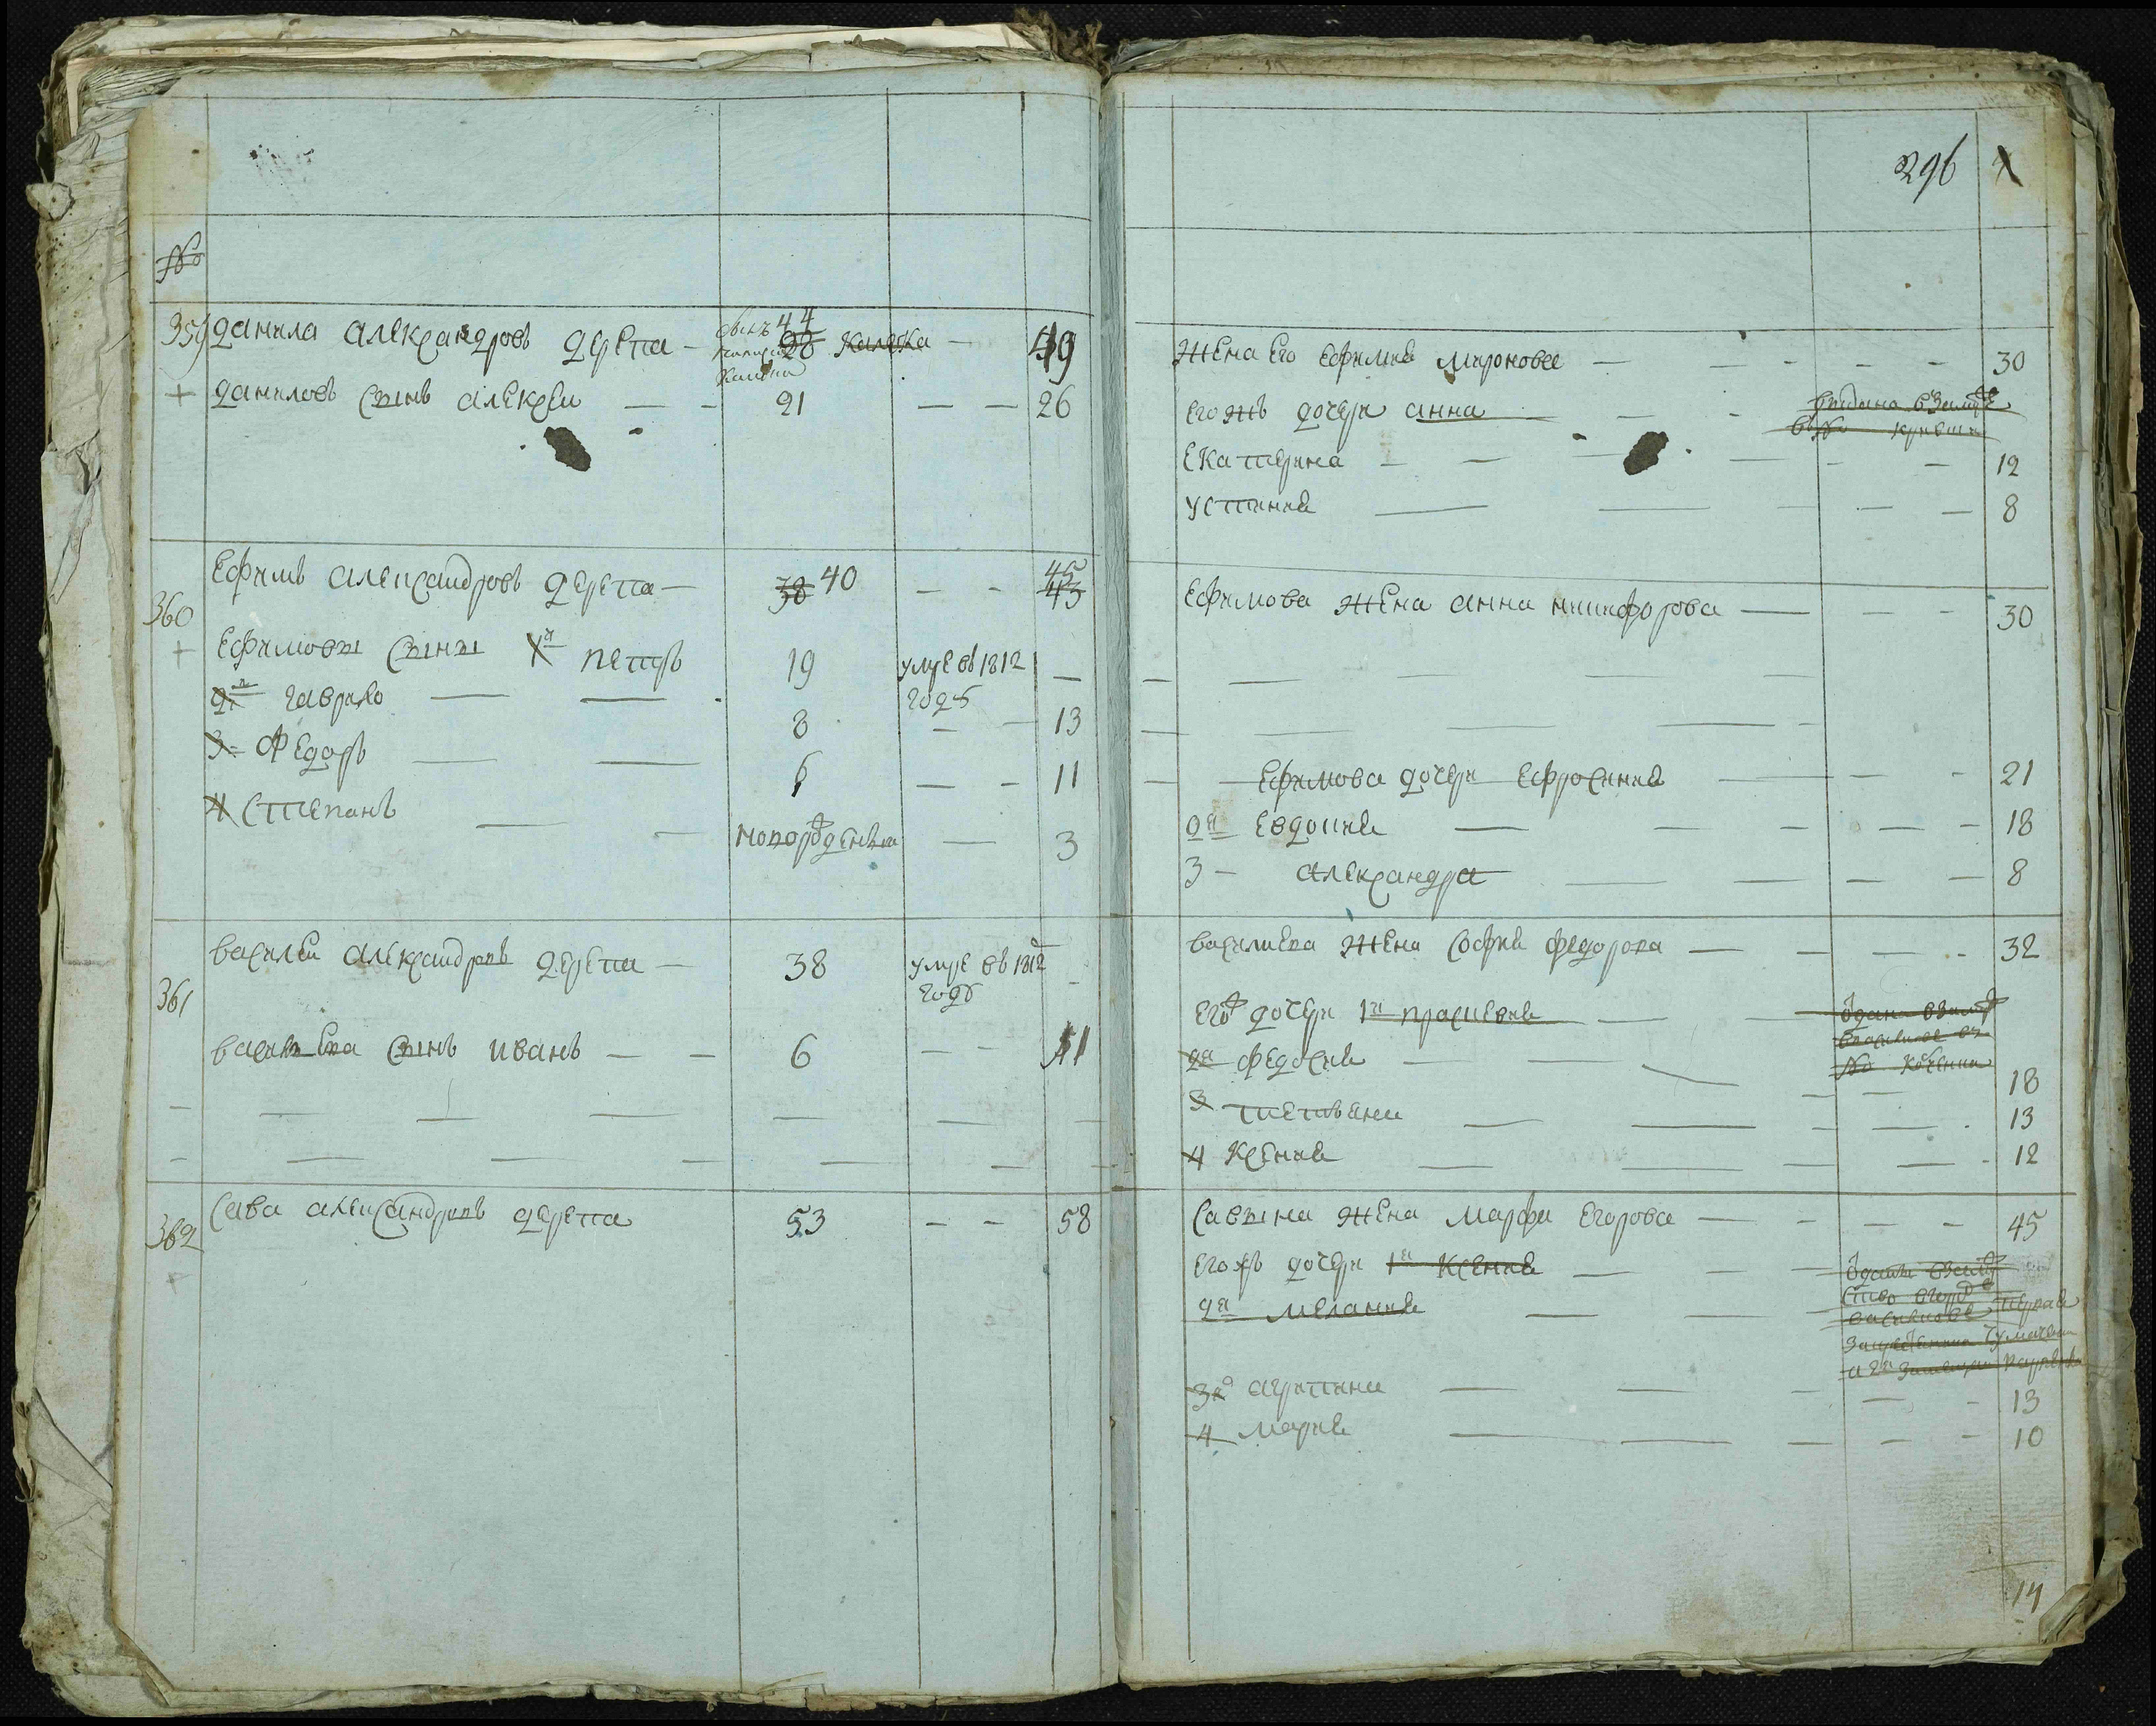 №
359 Данила Александровъ Дерепа — 44 28 Калека — 49
Даниловъ сынъ Алексеи — — 21 — — 26
360 Ефимъ Александровъ Дерепа — 38 40 — — 45 43
Ефимовы сыны 1й Петръ 19 умре въ 1812 годѣ —
2й Гаврило — — 8 — — 13
3 Федоръ — — 6 — — 11
4 Степанъ — — новорожденъ — 3
361 Василеи Александровъ Дерепа — 38 умре въ 1812 годѣ -
Васильева сынъ Иванъ — — 6 — — 11
362 Сава Александровъ Дерепа 53 — — 58
296
Жена его Ефимия Миронова — 30
его жъ дочери Анна — выдана в замуж
въ
Екатерина — — 12
Устиния — — 8
Ефимова жена Анна Никифорова — 30
Ефимова дочери Ефросиния — 21
2я Евдокия — 18
3 — Александра — 8
Васильева жена София Федорова — 32
его ж дочери 1я Прасковия — одана в замуж
2я Федосия — 18
3 Тетьяна — 13
4 Ксения — 12
Савына жена Марфа Егорова — 45
его жъ дочери 1я Ксения —
2я Мелания —
3я Агрипина — 13
4 Мария — 10
14